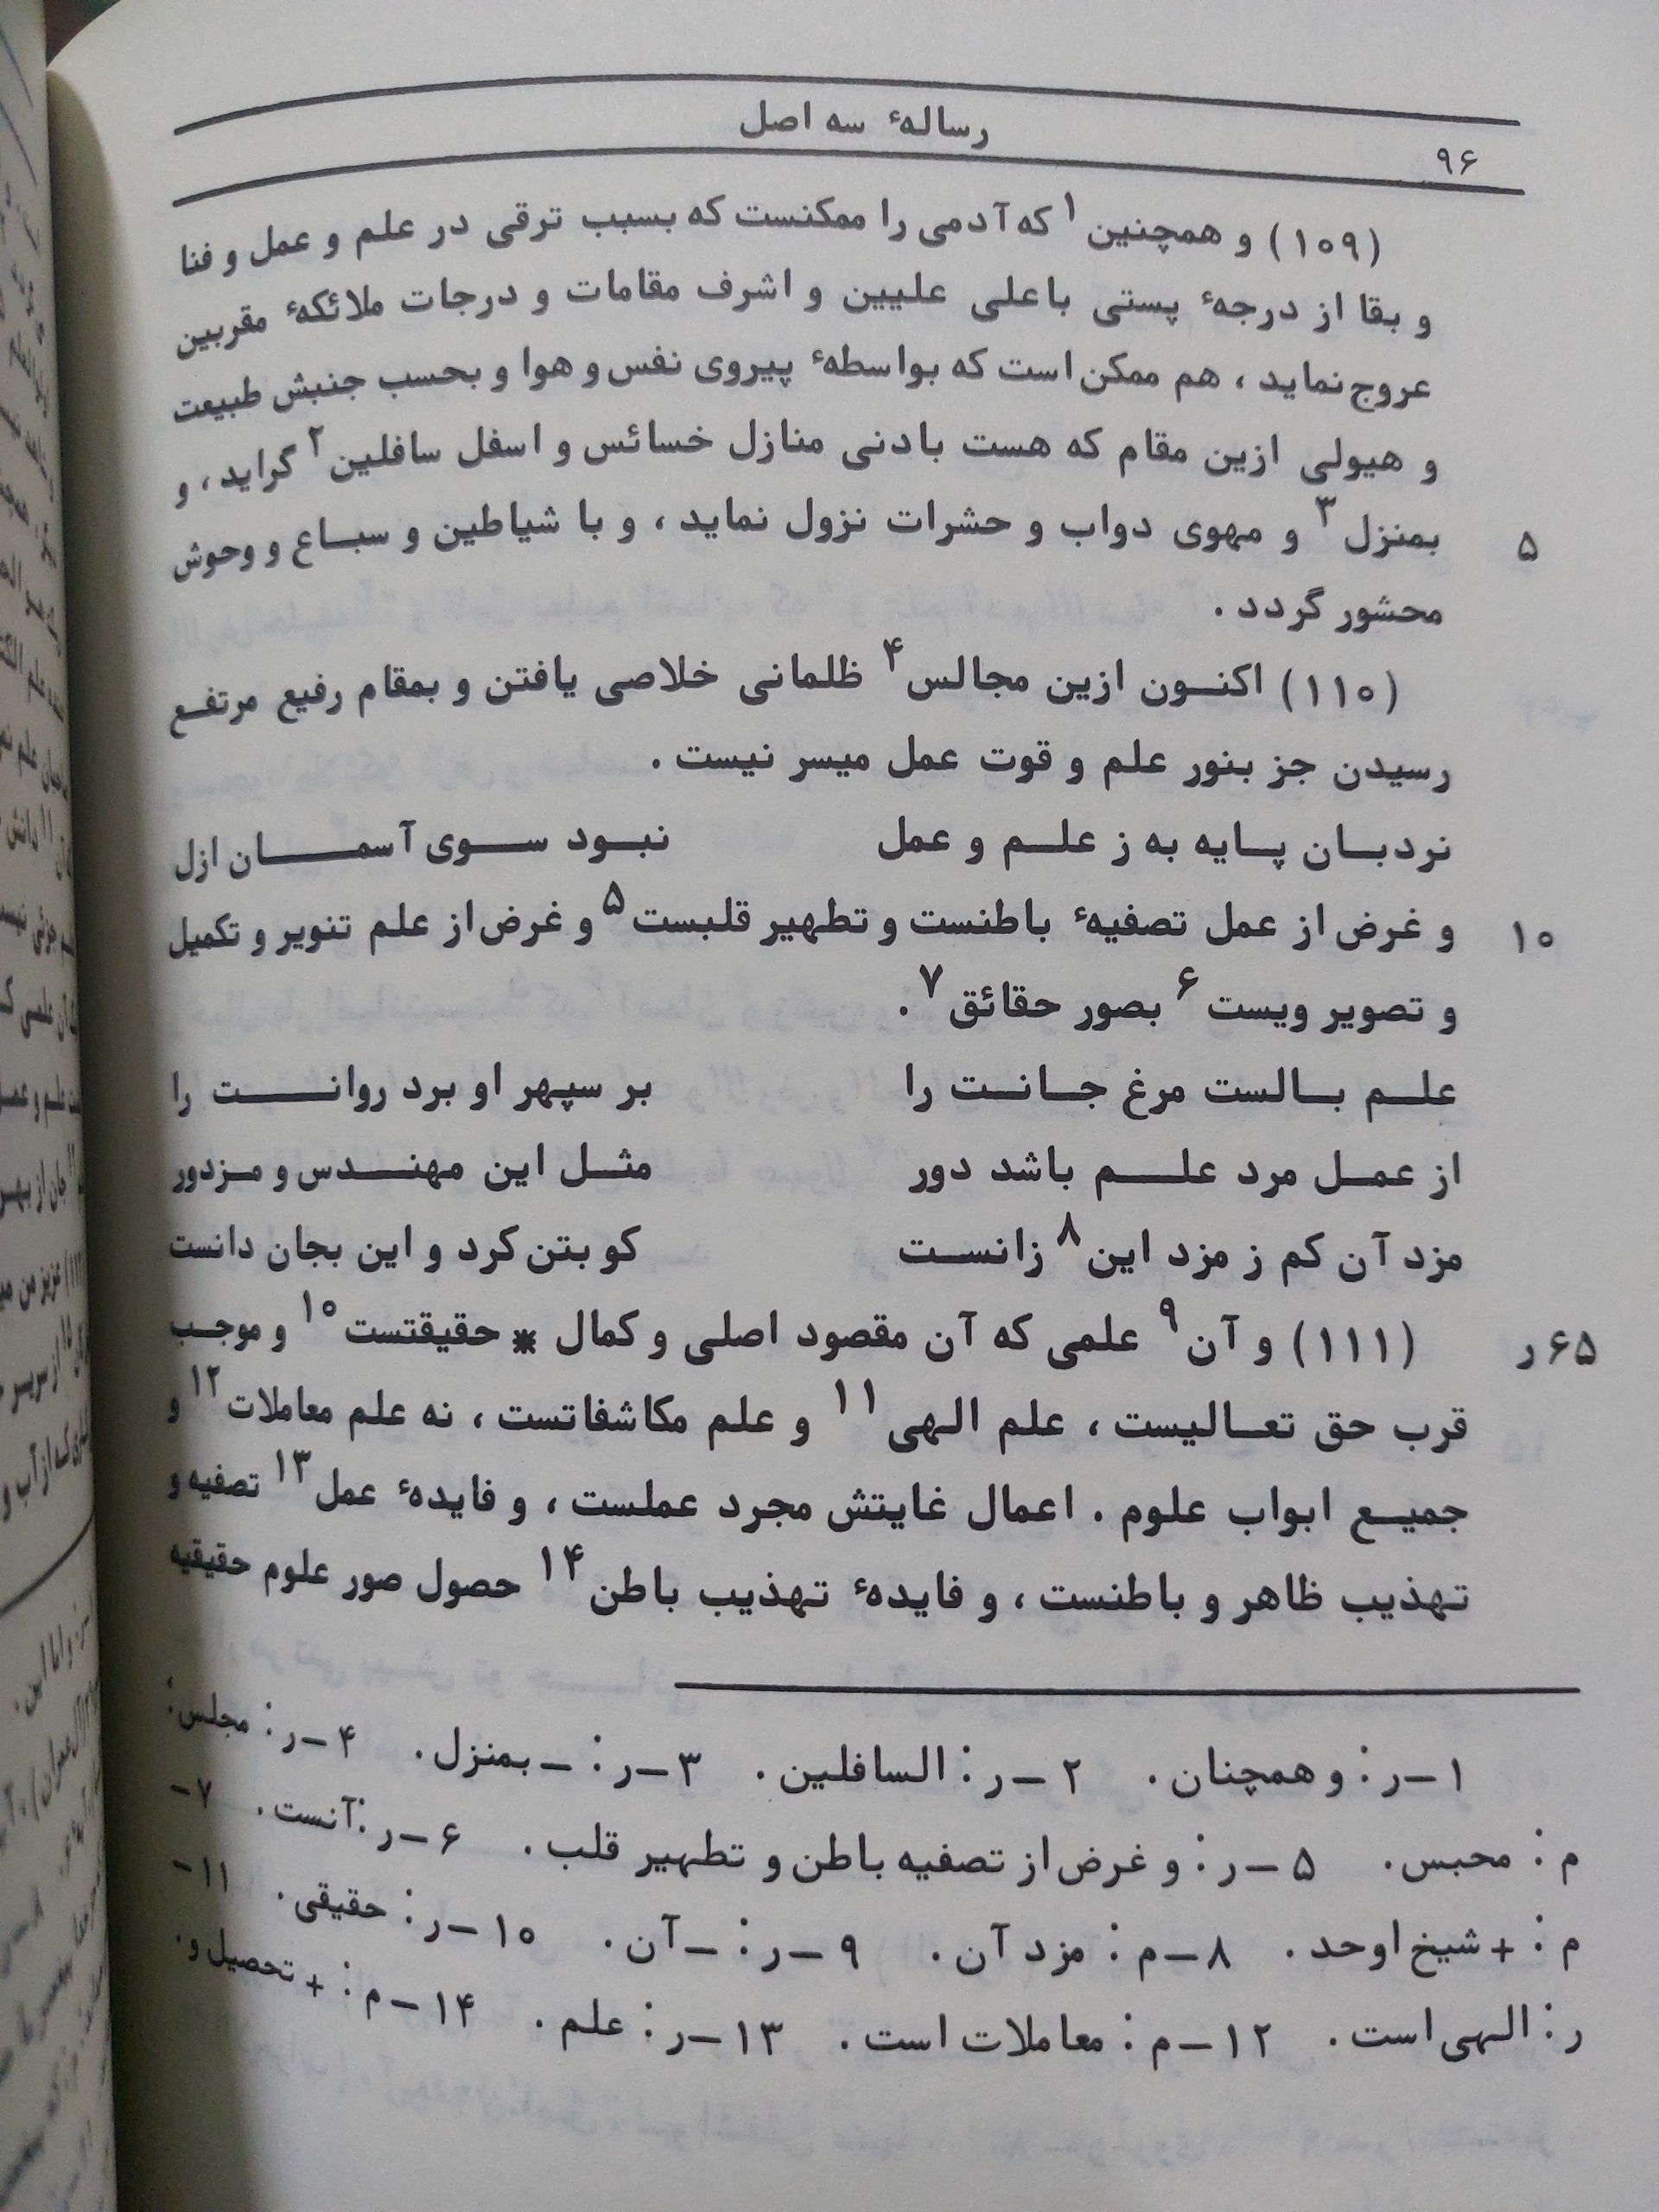 رسالهٔ سه اصل
۹۶
(۱۰۹) و همچنین۱ که آدمی را ممکنست که بسبب ترقی در علم و عمل و فنا
و بقا از درجهٔ پستی باعلی علیین و اشرف مقامات و درجات ملائکهٔ مقربین
عروج نماید ، هم ممکن است که بواسطهٔ پیروی نفس و هوا و بحسب جنبش طبیعت
و هیولی ازین مقام که هست بادنی منازل خسائس و اسفل سافلین۲ گراید ، و
۵ بمنزل۳ و مهوی دواب و حشرات نزول نماید ، و با شیاطین و سباع و وحوش
محشور گردد .
(۱۱۰) اکنون ازین مجالس۴ ظلمانی خلاصی یافتن و بمقام رفیع مرتفع
رسیدن جز بنور علم و قوت عمل میسر نیست .
نردبان پایه به ز علم و عمل نبود سوی آسمان ازل
۱۰ و غرض از عمل تصفیهٔ باطنست و تطهیر قلبست۵ و غرض از علم تنویر و تکمیل
و تصویر ویست۶ بصور حقائق۷ .
علم بالست مرغ جانت را بر سپهر او برد روانت را
از عمل مرد علم باشد دور مثل این مهندس و مزدور
مزد آن کم ز مزد این۸ زانست کو بتن کرد و این بجان دانست
۶۵ر (۱۱۱) و آن۹ علمی که آن مقصود اصلی و کمال * حقیقتست۱۰ و موجب
قرب حق تعالیست ، علم الهی۱۱ و علم مکاشفاتست ، نه علم معاملات۱۲ و
جمیع ابواب علوم . اعمال غایتش مجرد عملست ، و فایدهٔ عمل۱۳ تصفیه و
تهذیب ظاهر و باطنست ، و فایدهٔ تهذیب باطن۱۴ حصول صور علوم حقیقیه
۱-ر: و همچنان . ۲-ر: السافلین . ۳-ر: - بمنزل . ۴-ر: مجلس:
م: محبس . ۵-ر: و غرض از تصفیه باطن و تطهیر قلب . ۶-ر: آنست . ۷-
م: + شیخ اوحد . ۸-م: مزد آن . ۹-ر: - آن . ۱۰-ر: حقیقی . ۱۱-
ر: الهی است . ۱۲-م: معاملات است . ۱۳-ر: علم . ۱۴-م: + تحصیل و .